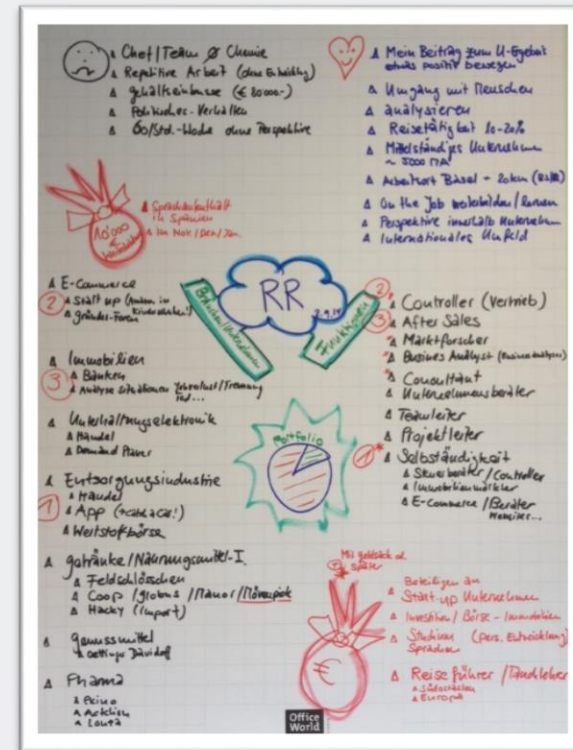 Chef/Team Ø Chemie
Repetitive Arbeit (ohne Entwicklung)
Gehaltseinbusse (€ 80'000.-)
Politisches-Verhalten
60/Std.-Woche ohne Perspektive
Mein Beitrag zum U-Ergebnis
etwas positiv bewegen
Umgang mit Menschen
analysieren
Reisetätigkeit 10-20%
Mittelständiges Unternehmen
~ 5000 MA
Arbeitsort Basel - 20km
On the Job weiterbilden/lernen
Perspektive innerhalb Unternehm
Internationales Umfeld
10'000
€
Sprachaufenthalt
in Spanien
im Nov./Dez/Jan.
RR
Branchen/Unternehmen
Funktionen
E-Commerce
2
Start up
Gründer-Foren
Immobilien
3
Banken
Analyse Situationen
Unterhaltungselektronik
Handel
Demand Planer
Entsorgungsindustrie
Handel
1
App
Wertstoffbörse
Getränke/Nahrungsmittel-I.
Feldschlösschen
Coop/Globus/Manor/Mövenpick
Hacky (Import)
Genussmittel
Oettinger Davidoff
Pharma
Actelion
Lonza
2
Controller (Vertrieb)
3
After Sales
Marktforscher
Busines Analyst
Consultant
Unternehmensberater
Teamleiter
Projektleiter
1
Selbständigkeit
Steuerberater/Controller
Immobilienmakler
E-Commerce/Berater
Websites...
Portfolio
später
€
Beteiligen an
Start-up Unternehmen
Investition/Börse-Immobilien
Studium (pers. Entwicklung)
Sprachen
Reiseführer/Tauchlehrer
Südostasien
Europa
Office
World